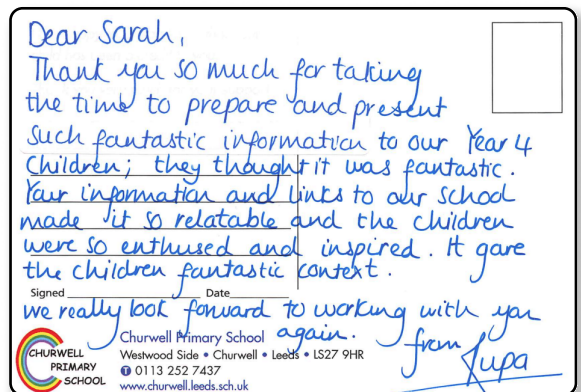 Dear Sarah,
Thank you so much for taking
the time to prepare and present
such fantastic information to our Year 4
Children; they thought it was fantastic.
Your information and links to our school
made it so relatable and the children
were so enthused and inspired. It gave
the children fantastic context.
Signed Date
we really look forward to working with you
again.
from
CHURWELL
PRIMARY
SCHOOL
Churwell Primary School
Westwood Side • Churwell • Leeds • LS27 9HR
0113 252 7437
www.churwell.leeds.sch.uk